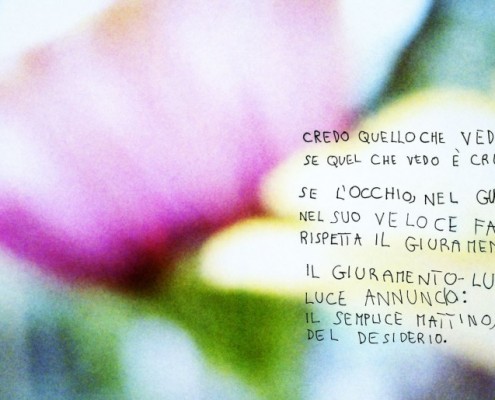 CREDO QUELLO CHE VED
SE QUEL CHE VEDO È CRE
SE L'OCCHIO, NEL GU
NEL SUO VELOCE FA
RISPETTA IL GIURAMEN
IL GIURAMENTO-LU
LUCE ANNUNCO:
IL SEMPLICE MATTINO,
DEL DESIDERIO.